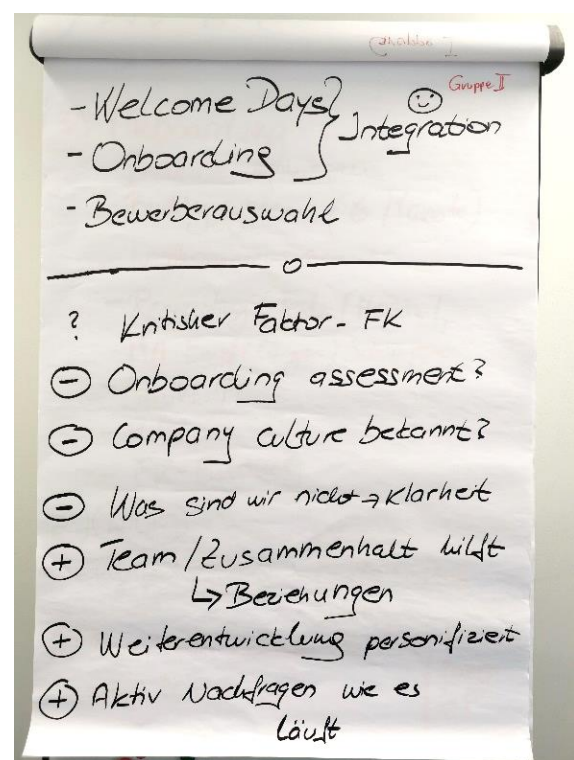 Gruppe II
- Welcome Days } Integration
- Onboarding
- Bewerberauswahl
? Kritisher Faktor - FK
⊖ Onboarding assessment?
⊖ Company culture bekannt?
⊖ Was sind wir nicht → Klarheit
⊕ Team / Zusammenhalt hilft
↳ Beziehungen
⊕ Weiterentwicklung personifiziert
⊕ Aktiv Nachfragen wie es
läuft